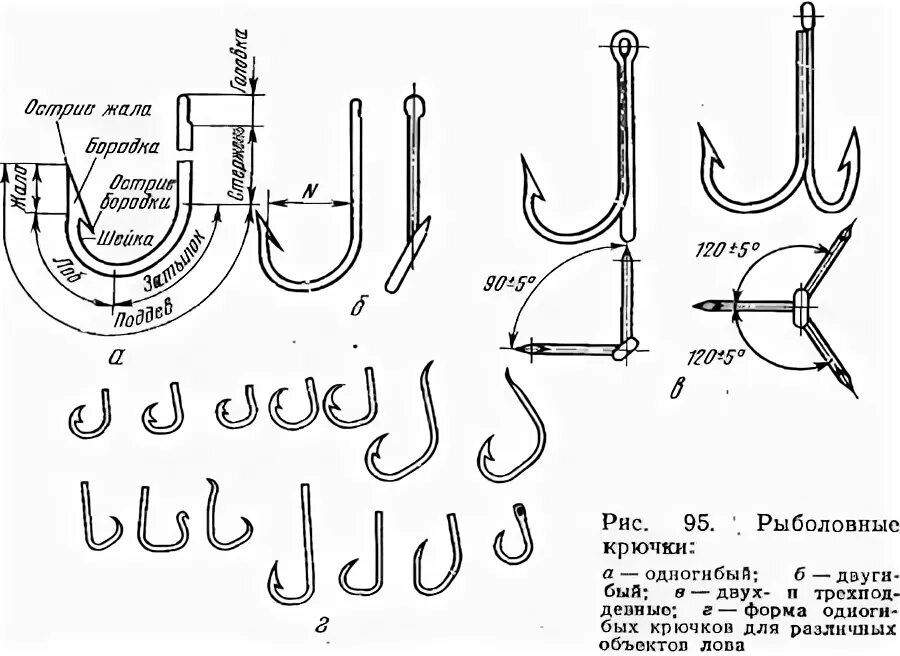 Головка
Острие жала
Бородка
Стержень
Жало
Острие
бородки
Шейка
N
Лоб
Затылок
Поддев
а
б
90±5°
120±5°
120±5°
в
г
Рис. 95. Рыболовные
крючки:
а — одногибый; б — двуги-
бый; в — двух- и трехпод-
девные; г — форма одноги-
бых крючков для различных
объектов лова